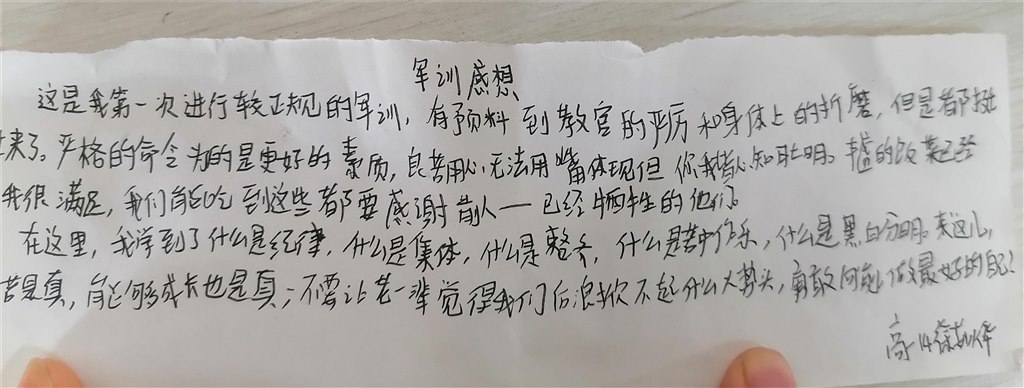 军训感想
这是我第一次进行较正规的军训，有预料到教官的严厉和身体上的折磨，但是都挺
过来了。严格的命令为的是更好的素质，良苦用心无法用嘴体现但你我皆心知肚明。丰盛的饭菜已经
我很满足，我们能吃到这些都要感谢前人——已经牺牲的他们。
在这里，我学到了什么是纪律，什么是集体，什么是整齐，什么是苦中作乐，什么是黑白分明。来这儿，
苦是真，能够成长也是真；不要让老一辈觉得我们后浪掀不起什么大势头，勇敢向前做最好的自己！
高一14